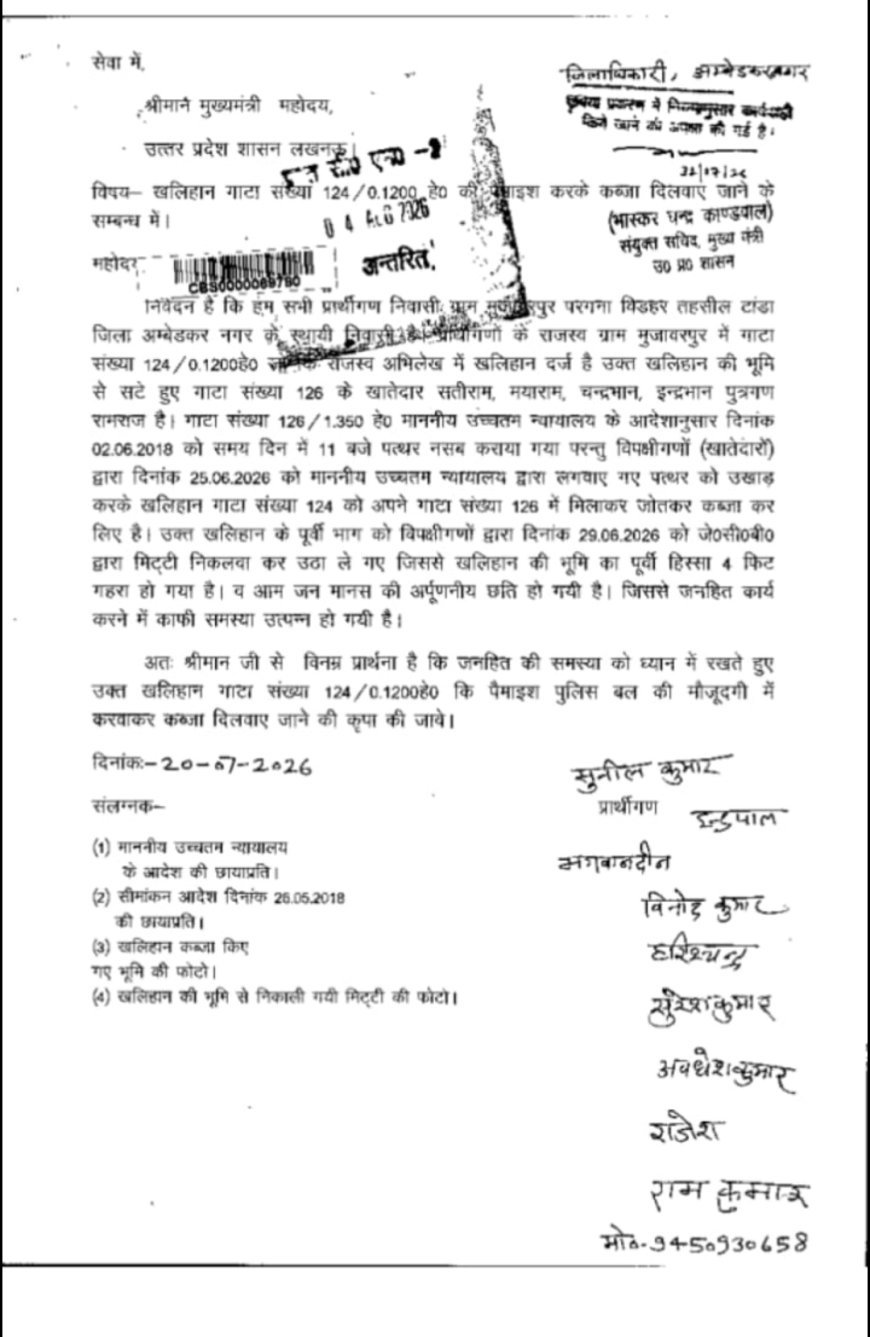 सेवा में,
जिलाधिकारी, अम्बेडकरनगर
श्रीमान मुख्यमंत्री महोदय,
कृपया प्रकरण में नियमानुसार कार्यवाही
किये जाने की अपेक्षा की गई है।
उत्तर प्रदेश शासन लखनऊ।
विषय– खलिहान गाटा संख्या 124/0.1200 हे0 की पैमाइश करके कब्जा दिलवाए जाने के
सम्बन्ध में।
04 AUG 2026
(भास्कर चन्द्र काण्डपाल)
संयुक्त सचिव, मुख्य मंत्री
उ0 प्र0 शासन
महोदय
अन्तरित,
CBS0000069780
निवेदन है कि हम सभी प्रार्थीगण निवासी ग्राम मुजावरपुर परगना विडहर तहसील टांडा
जिला अम्बेडकर नगर के स्थायी निवासी है। प्रार्थीगणों के राजस्व ग्राम मुजावरपुर में गाटा
संख्या 124/0.1200हे0 जोकि राजस्व अभिलेख में खलिहान दर्ज है उक्त खलिहान की भूमि
से सटे हुए गाटा संख्या 126 के खातेदार सतीराम, मयाराम, चन्द्रभान, इन्द्रभान पुत्रगण
रामराज है। गाटा संख्या 126/1.350 हे0 माननीय उच्चतम न्यायालय के आदेशानुसार दिनांक
02.06.2018 को समय दिन में 11 बजे पत्थर नसब कराया गया परन्तु विपक्षीगणों (खातेदारों)
द्वारा दिनांक 25.06.2026 को माननीय उच्चतम न्यायालय द्वारा लगवाए गए पत्थर को उखाड़
करके खलिहान गाटा संख्या 124 को अपने गाटा संख्या 126 में मिलाकर जोतकर कब्जा कर
लिए है। उक्त खलिहान के पूर्वी भाग को विपक्षीगणों द्वारा दिनांक 29.06.2026 को जे0सी0बी0
द्वारा मिट्टी निकलवा कर उठा ले गए जिससे खलिहान की भूमि का पूर्वी हिस्सा 4 फिट
गहरा हो गया है। व आम जन मानस की अर्पूणनीय छति हो गयी है। जिससे जनहित कार्य
करने में काफी समस्या उत्पन्न हो गयी है।
अतः श्रीमान जी से विनम्र प्रार्थना है कि जनहित की समस्या को ध्यान में रखते हुए
उक्त खलिहान गाटा संख्या 124/0.1200हे0 कि पैमाइश पुलिस बल की मौजूदगी में
करवाकर कब्जा दिलवाए जाने की कृपा की जावे।
दिनांकः–20-07-2026
सुनील कुमार
संलग्नक–
प्रार्थीगण
इन्द्रपाल
(1) माननीय उच्चतम न्यायालय
के आदेश की छायाप्रति।
भगवानदीन
(2) सीमांकन आदेश दिनांक 26.05.2018
की छायाप्रति।
विनोद कुमार
(3) खलिहान कब्जा किए
गए भूमि की फोटो।
हरिश्चन्द्र
(4) खलिहान की भूमि से निकाली गयी मिट्टी की फोटो।
सुरेशकुमार
अवधेशकुमार
राजेश
राम कुमार
मो०-9450930658